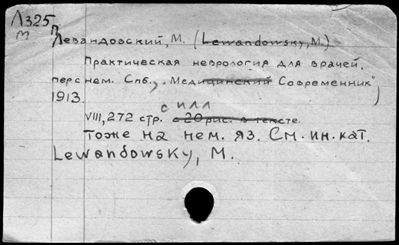 Л325
п
т
Левандовский, М. (Lewandowsky, M.)
Практическая неврология для врачей.
перс нем. Спб., „Медицинский Современник",
1913.
с илл
VIII, 272 стр. с 20 рис. в тексте.
Тоже на нем. яз. См. ин. кат.
Lewandowsky, M.